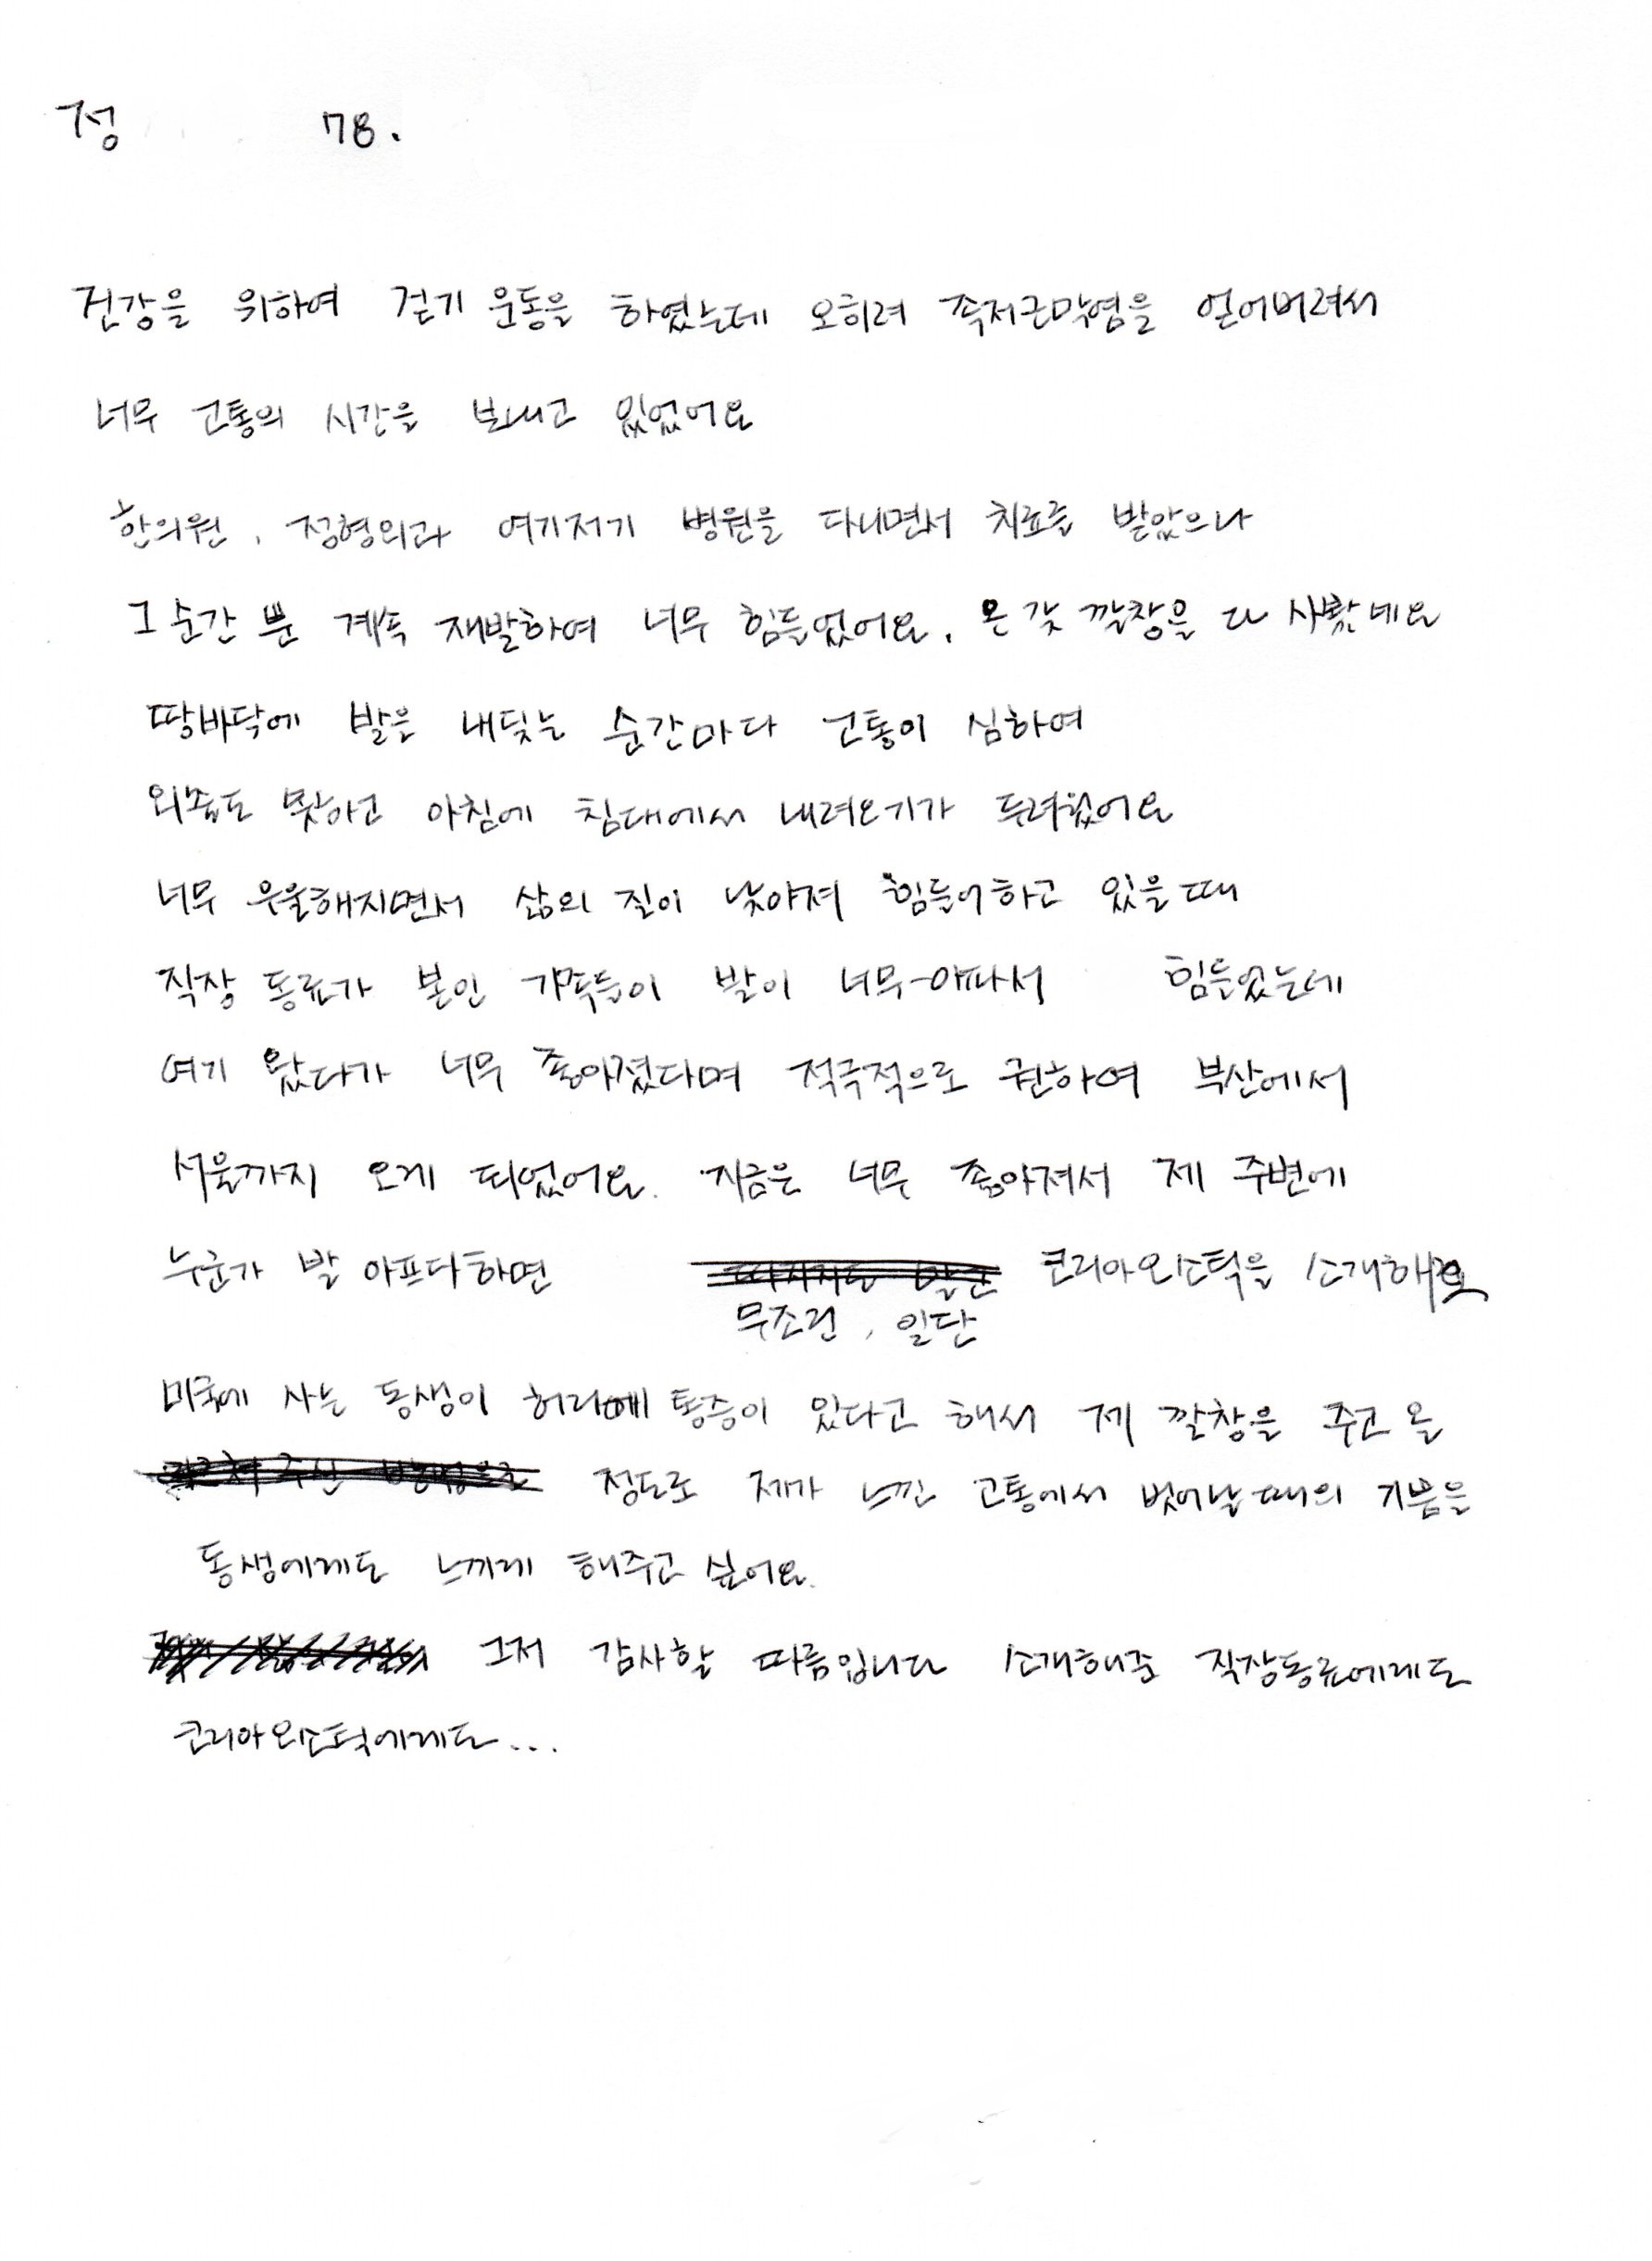 정 78.
건강을 위하여 걷기 운동을 하였는데 오히려 족저근막염을 얻어버려서
너무 고통의 시간을 보내고 있었어요
한의원, 정형외과 여기저기 병원을 다니면서 치료를 받았으나
그 순간 뿐 계속 재발하여 너무 힘들었어요. 온갖 깔창을 다 사봤네요
땅바닥에 발을 내딪는 순간마다 고통이 심하여
외출도 못하고 아침에 침대에서 내려오기가 두려웠어요
너무 우울해지면서 삶의 질이 낮아져 힘들어하고 있을때
직장 동료가 본인 가족들이 발이 너무 아파서 힘들었는데
여기 왔다가 너무 좋아졌다며 적극적으로 권하여 부산에서
서울까지 오게 되었어요. 지금은 너무 좋아져서 제 주변에
누군가 발 아프다하면 코리아외스틱을 소개해요
무조건, 일단
미국에 사는 동생이 허리에 통증이 있다고 해서 제 깔창을 주고 올
정도로 제가 느낀 고통에서 벗어날때의 기쁨을
동생에게도 느끼게 해주고 싶어요.
그저 감사할 따름입니다 소개해준 직장동료에게도
코리아외스틱에게도...